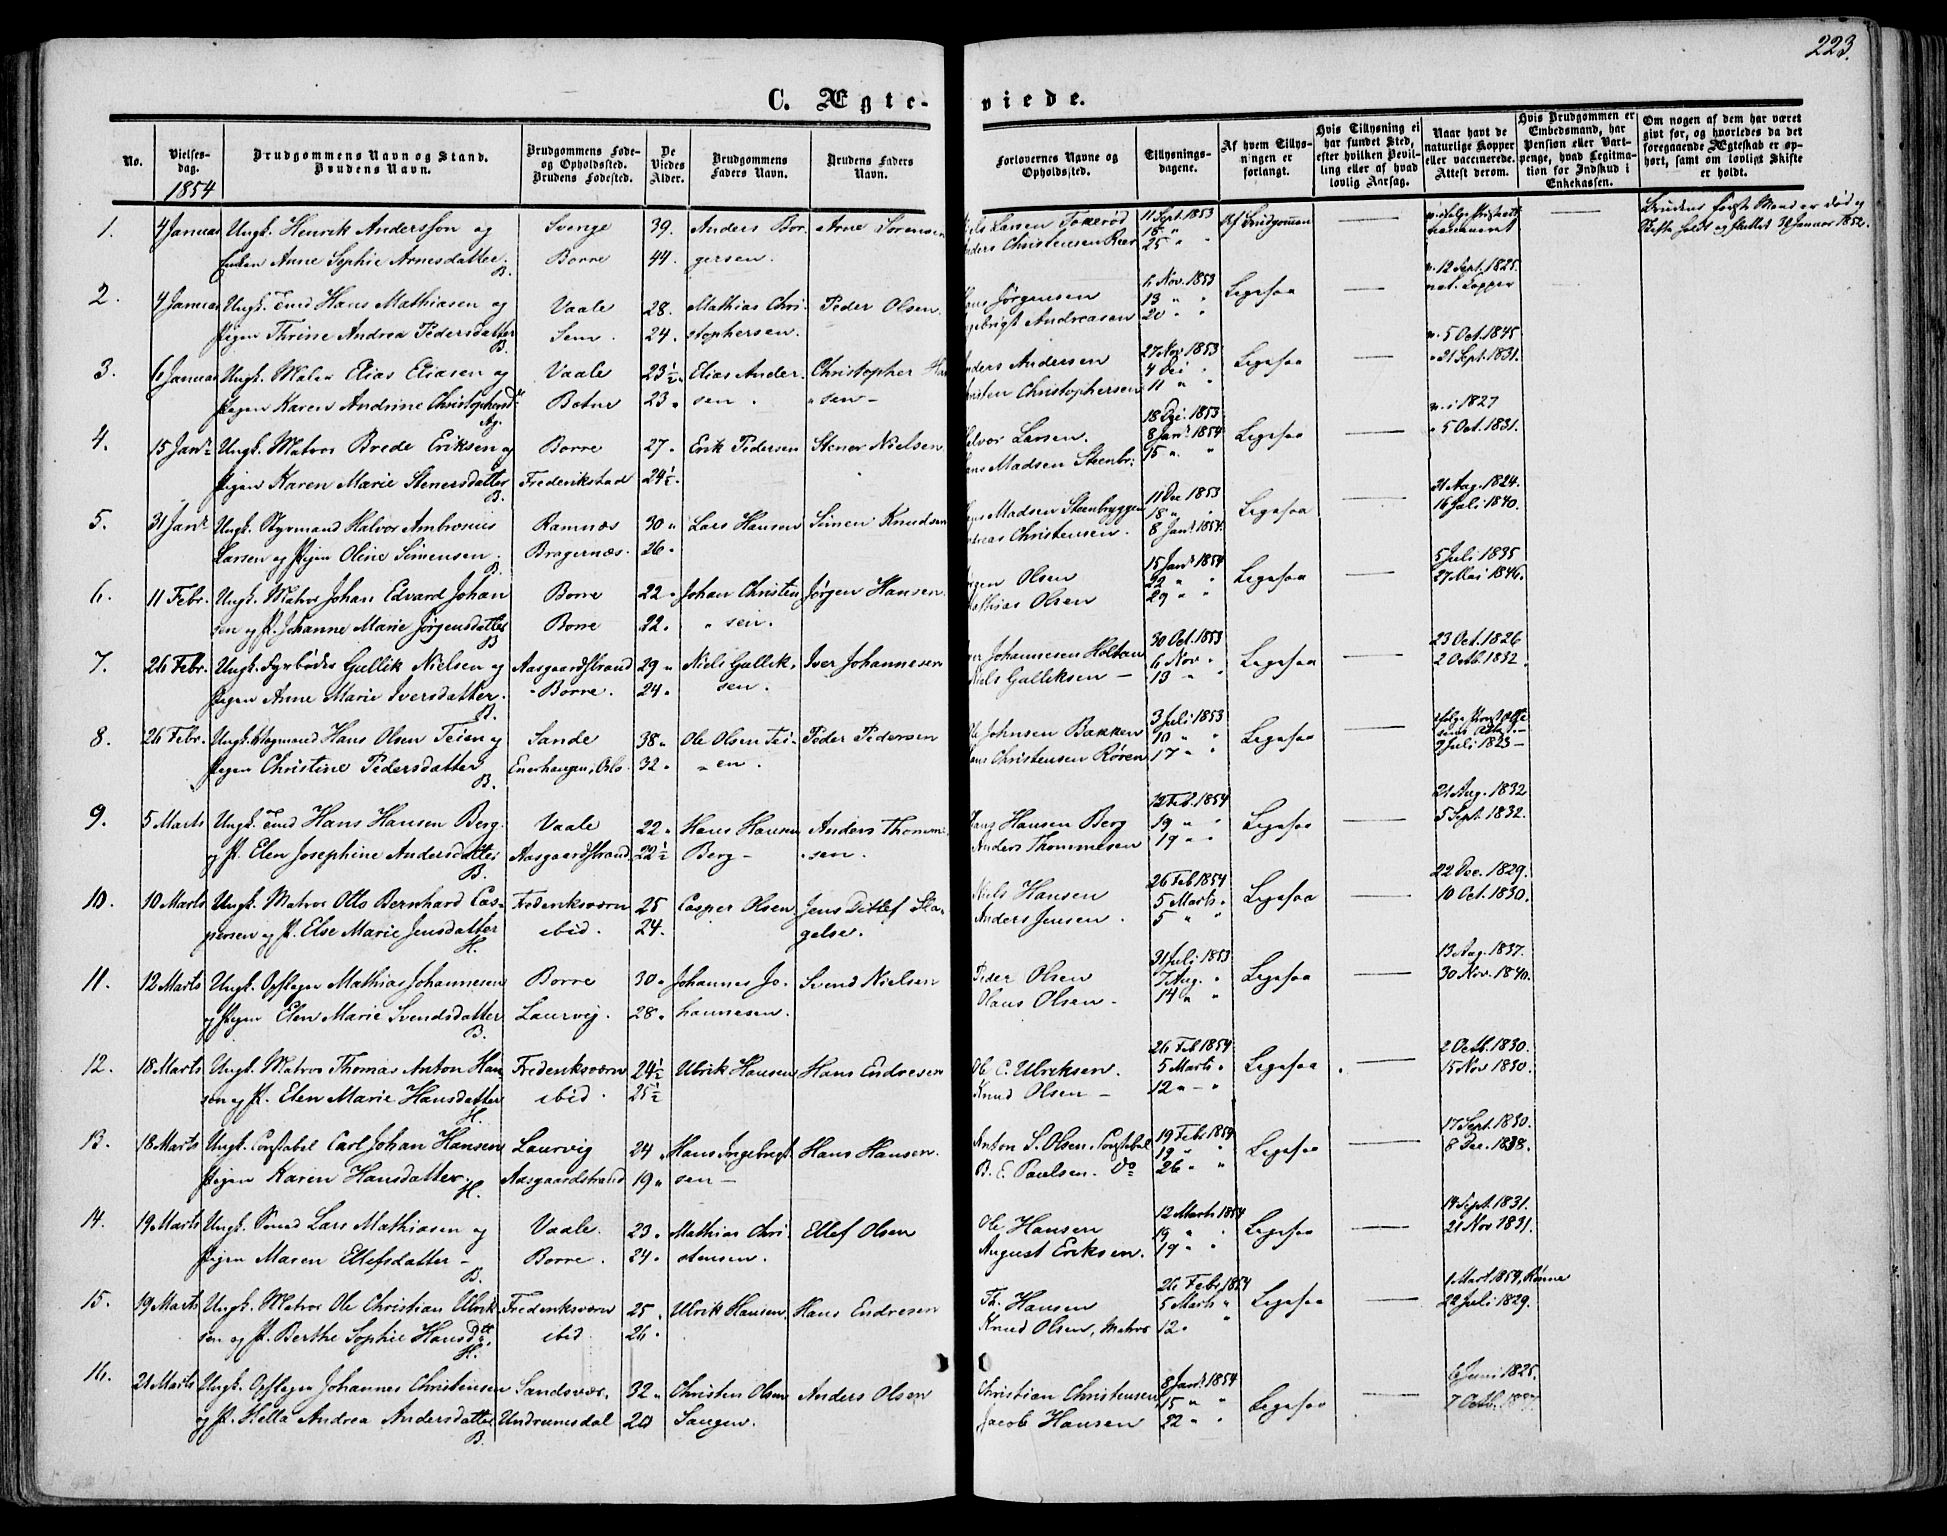 223.
C. Ægte-viede.
No.
Vielses-dag.
1854
Brudgommens Navn og Stand.
Brudens Navn.
Brudgommens Føde- og Opholdssted.
Brudens Fødested.
De Viedes Alder.
Brudgommens Faders Navn.
Brudens Faders Navn.
Forlovernes Navne og Opholdssted.
Tillysnings-dagene.
Af hvem Tillysningen er forlangt.
Hvis Tillysning ei har fundet Sted, efter hvilken Bevilling eller af hvad lovlig Aarsag.
Naar havt de naturlige Kopper eller vaccinerede. Attest derom.
Hvis Brudgommen er Embedsmand, har Pension eller Vartpenge, hvad Legitimation for Indskud i Enkekassen.
Om nogen af dem har været givt før, og hvorledes da det foregaaende Ægteskab er ophørt, samt om lovligt Skifte er holdt.
1. 4 Januar Ungk. Henrik Anderssøn og Svenge 39. Anders Bor- Arne Sørensen Niels Larsen Foxerød 11 Sept. 1853 Af Brudgommen Brudens første Mand er død og
Enken Anne Sophie Arnesdatter. Borre 44. gersen. Anders Christensen 25 " " Skifte holdt og sluttet 30 Januar 1852.
B.
2. 4 Januar Ungk. Hans Mathiasen og Vaale 28. Mathias Chri- Peder Olsen. Hans Jørgensen 6 Nov. 1853 13 " " Ligesaa 12 Sept. 1825. nat. Kopper
Pigen Thrine Andrea Pedersdatter Sem 24. stophersen. Ingebrigt Andreasen 20 " "
B.
3. 6 Januar Ungk. Maler Elias Eliasen og Vaale 23½ Elias Ander- Christopher Han Anders Andersen 27 Nov. 1853 4 Dec Ligesaa 5 Oct. 1845 21 Sept. 1831.
Pigen Karen Andrine Christophersd. Botne 23 " sen. sen Christen Christophersen 11 " "
4. 15 Janr. Ungk. Matros Brede Eriksen og Borre 27 " Erik Pedersen Stener Nielsen Halvor Larsen. 18 Dec. 1853 8 Janr. 1854 Ligesaa 1827 5 Oct. 1831.
Pigen Karen Marie Stenersdatter Frederikstad 24½. Hans Madsen Steenbr: 15 " "
B.
5. 31 Janr. Ungk. Styrmand Halvor Ambrosius Ramnæs 30 " Lars Hansen Simen Knudsen Hans Madsen Steenbryggen 11 Dec 1853 18 " " Ligesaa 21 Aug. 1824. 16 Juli 1840.
Larsen og Pigen Oline Simensen. Bragernæs. 26 " Andreas Christensen. 8 Janr. 1854.
B.
6. 11 Febr. Ungk. Matros Johan Edvard Johan Borre 22 " Johan Christen Jørgen Hansen. Jørgen Olsen 15 Janr. 1854 22 " " Ligesaa 5 Juli 1835 27 Mai 1846.
sen og P. Johanne Marie Jørgensdatter Borre 22. " sen. Mathias Olsen 29 " "
B
7. 26 Febr. Ungk. Fyrbøder Gullik Nielsen og Aasgaardstrand 29 " Niels Gullik- Iver Johannesen Iver Johannesen Holtan 30 Oct. 1853 6 Nov " Ligesaa 23 Oct. 1826 2 Octb. 1832.
Pigen Anne Marie Iversdatter. Borre. 24 " sen. Niels Gulliksen 13 " "
B.
8. 26 Febr. Ungk. Hans Olsen Teien og Sande 38 " Ole Olsen Tei- Peder Pedersen Ole Johnsen Bakken 3 Juli 1853 10 " " Ligesaa 9 Juli 1823
Pigen Christine Pedersdatter Enerhaugen, Oslo. 32 " en. Hans Christensen Røren 17 " "
B.
9. 5 Marts Ungk. Hans Hansen Berg. Vaale 22 " Hans Hansen Anders Thomm- Hans Hansen Berg 12 Feb. 1854 19 " " Ligesaa 21 Aug. 1832 5 Sept. 1832.
og P. Elen Josephine Andersdatter Aasgaardstrand 22½ Berg sen. Anders Thommesen 19 " "
B.
10. 10 Marts Ungk. Matros Otto Bernhard Cas- Frederiksværn 25 Casper Olsen Jens Ditlef Sla- Niels Hansen 26 Feb 1854 5 Marts " Ligesaa 22 Dec. 1829. 10 Oct. 1830.
persen og P. Else Marie Jensdatter ibid. 24. gelse. Anders Jensen. 5 " "
H.
11. 12 Marts Ungk. Opsleger Mathias Johannesen Borre 30 " Johannes Jo- Svend Nielsen Peder Olsen 31 Juli 1853 7 Aug. " Ligesaa 13 Aug. 1837. 30 Nov. 1840.
og Pigen Elen Marie Svendsdatter Laurvig. 28 " hannesen. Olaus Olsen 14 " "
B.
12. 18 Marts Ungk. Matros Thomas Anton Han Frederiksværn 24½ Ulrik Hansen Hans Endresen Ole C. Ulriksen. 26 Feb 1854 5 Marts " Ligesaa 2 Octb. 1830. 15 Nov 1830.
sen og P. Elen Marie Hansdatter ibid. 25½ Knud Olsen 12 " "
H.
13. 18 Marts Ungk. Constabel Carl Johan Hansen Laurvig 24 " Hans Ingebrigt- Hans Hansen. Anton S. Olsen. Constabel 19 Febr 1854 19 " " Ligesaa 17 Sept. 1830. 8 Dec. 1838.
Pigen Karen Hansdatter. Aasgaardstrand 19 " sen B. E. Paulsen. Do 26 " "
H.
14. 19 Marts Ungk. Lars Mathiasen og Vaale. 23 " Mathias Chri- Ellef Olsen Ole Hansen 12 Marts 1854 19 " " Ligesaa 14 Sept. 1831. 21 Nov 1831.
Pigen Maren Ellefsdatter Borre. 24 " stensen. August Eriksen. 19 " "
B.
15. 19 Marts Ungk. Matros Ole Christian Ulrik Frederiksværn 25 " Ulrik Hansen. Hans Endresen Th. Hansen 26 Febr 1854 5 Marts " Ligesaa 1 Mart. 1854, Rønne 22 Juli 1829.
sen og P. Berthe Sophie Hansdtt ibid. 26 " Knud Olsen, Matros 12 " "
H.
16. 21 Marts Ungk. Opsleger Johannes Christensen Sandsvær. 32 " Christen Olsen Anders Olsen Christian Christensen 8 Janr. 1854 15 " " Ligesaa 6 Juni 1825. 7 Octb. 1837.
og P. Hella Andrea Andersdatter Undrumsdal 20 Saugen. Jacob Hansen 22 " "
B.